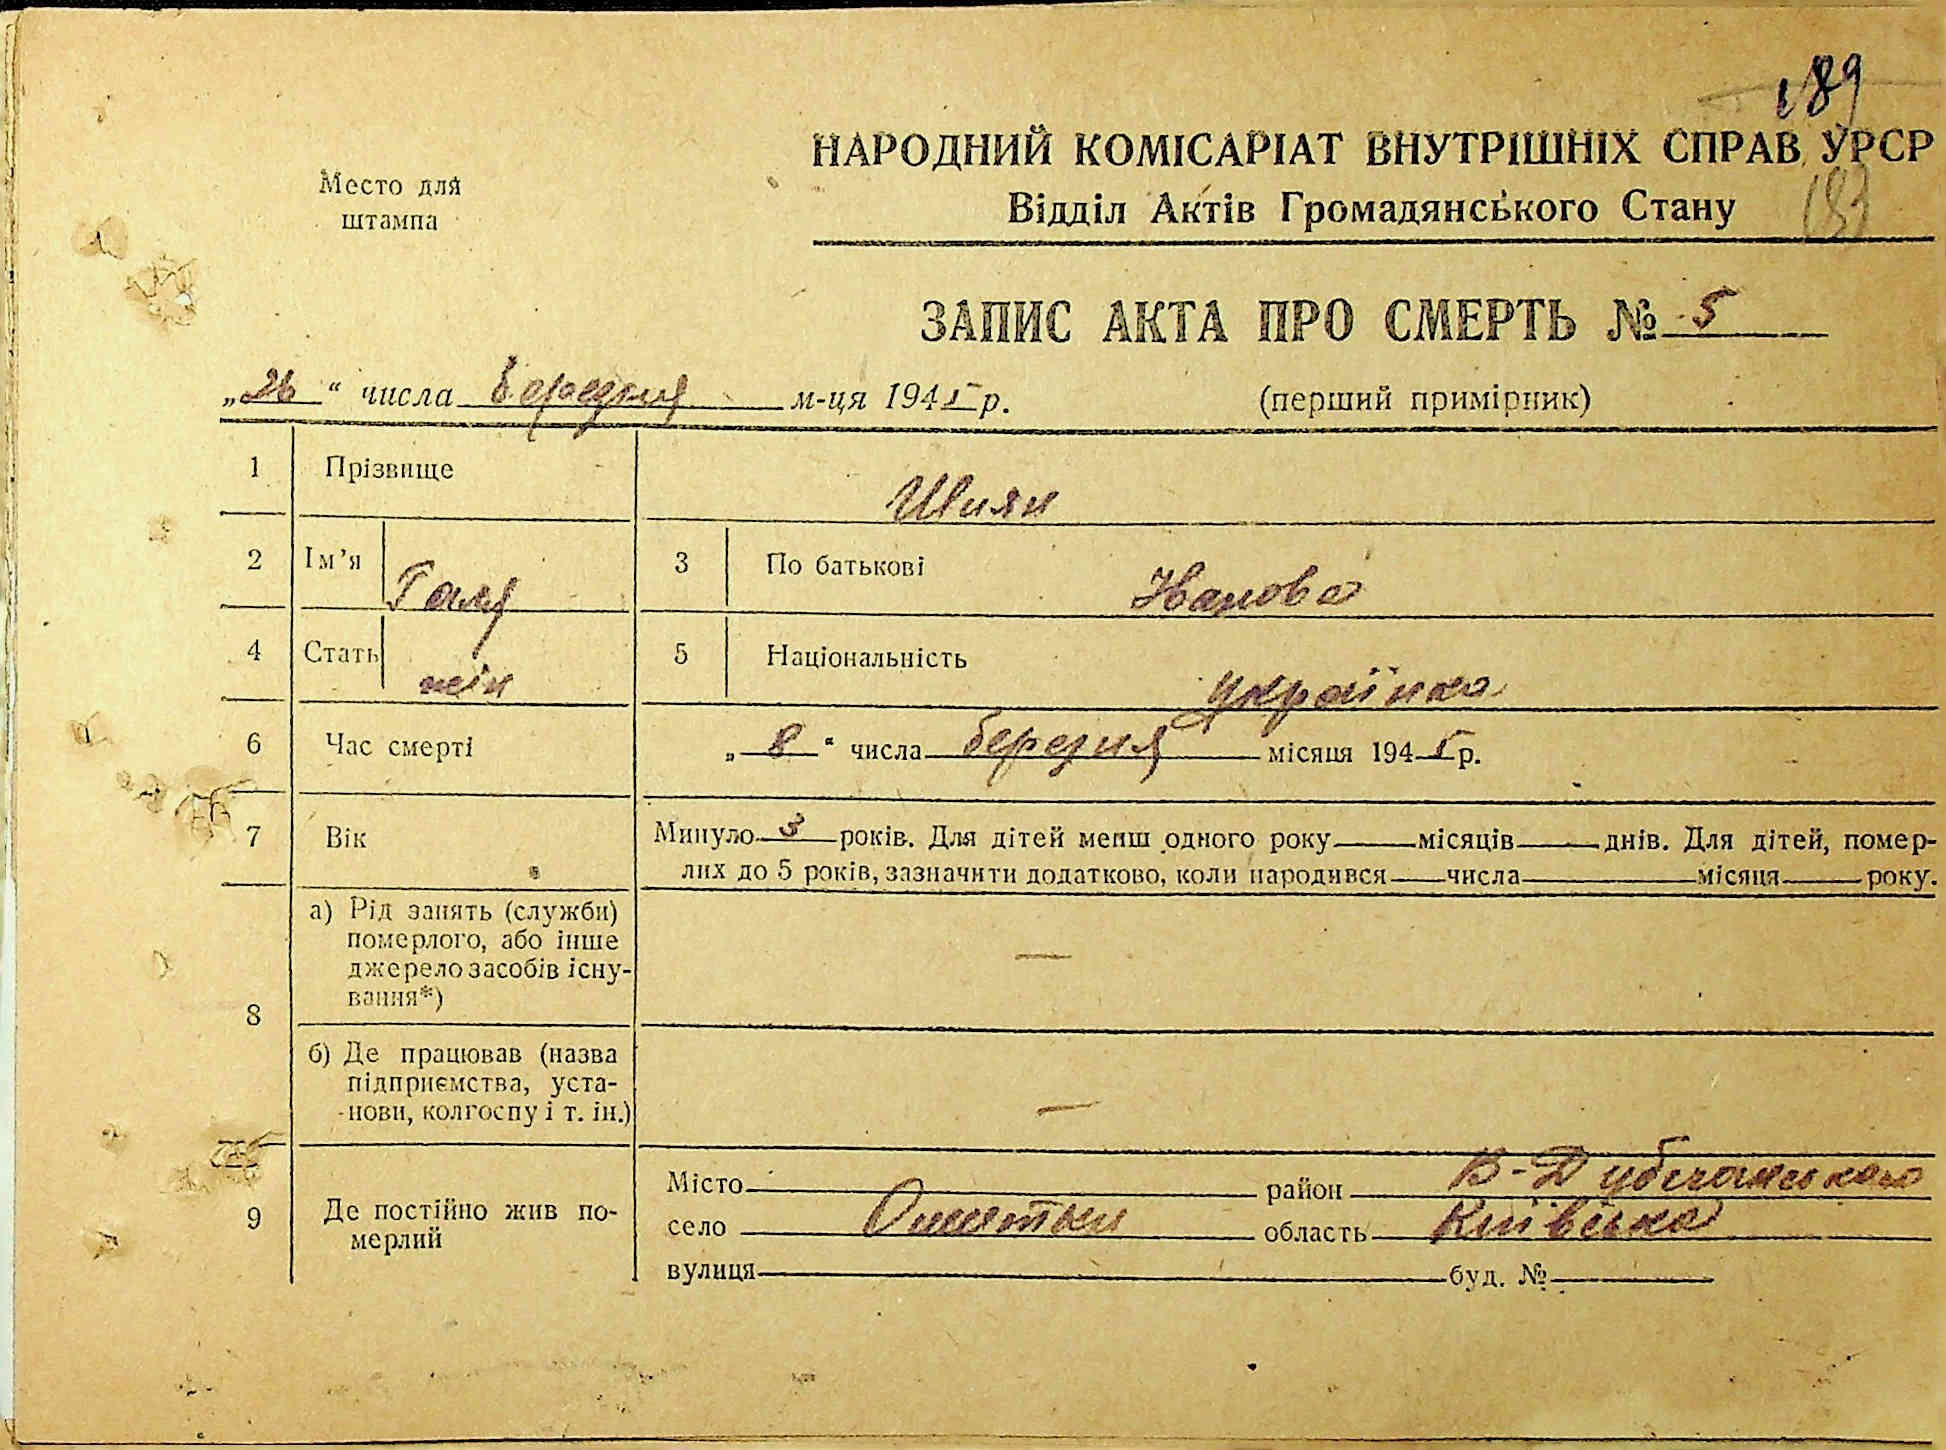 189
НАРОДНИЙ КОМІСАРІАТ ВНУТРІШНІХ СПРАВ УРСР
Место для
штампа
Відділ Актів Громадянського Стану
183
ЗАПИС АКТА ПРО СМЕРТЬ № 5
„26“ числа березня м-ця 1945 р.
(перший примірник)
1 Прізвище Шиян
2 Ім’я Галя 3 По батькові
4 Стать жін 5 Національність українка
6 Час смерті „8“ числа березня місяця 1945 р.
7 Вік Минуло 3 років. Для дітей менш одного року місяців днів. Для дітей, помер-
лих до 5 років, зазначити додатково, коли народився числа місяця року.
8 а) Рід занять (служби)
померлого, або інше
джерело засобів існу-
вання*) —
б) Де працював (назва
підприємства, уста-
нови, колгоспу і т. ін.) —
9 Де постійно жив по-
мерлий
Місто район В-Дубечанського
село Ошитки область Київська
вулиця буд. №